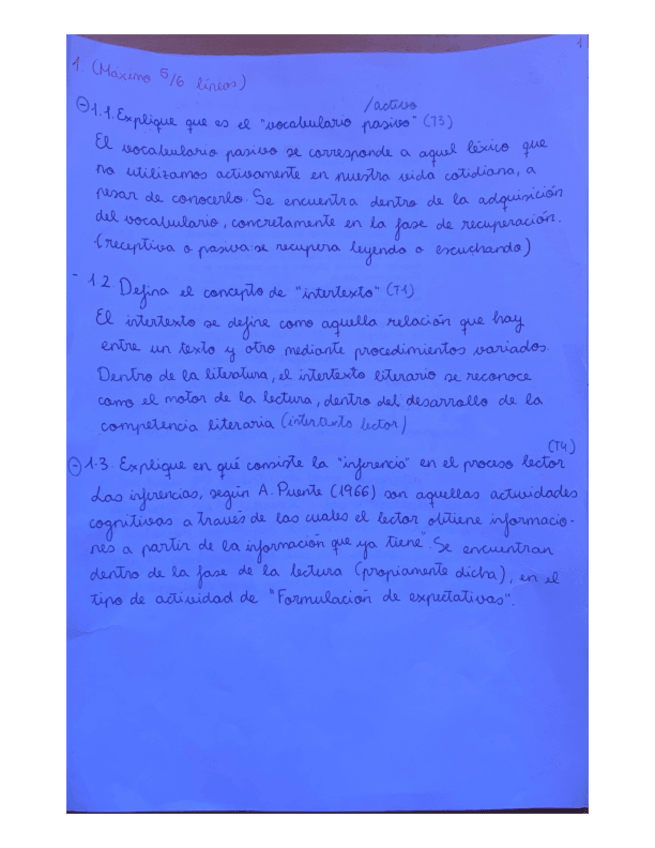 1
1. (Máximo 5/6 líneas)
/activo
1.1. Explique que es el "vocabulario pasivo" (T3)
El vocabulario pasivo se corresponde a aquel léxico que
no utilizamos activamente en nuestra vida cotidiana, a
pesar de conocerlo. Se encuentra dentro de la adquisición
del vocabulario, concretamente en la fase de recuperación.
(receptiva o pasiva: se recupera leyendo o escuchando)
- 1.2. Defina el concepto de "intertexto" (T1)
El intertexto se define como aquella relación que hay
entre un texto y otro mediante procedimientos variados.
Dentro de la literatura, el intertexto literario se reconoce
como el motor de la lectura, dentro del desarrollo de la
competencia literaria (intertexto lector)
(T4)
1.3. Explique en qué consiste la "inferencia" en el proceso lector
Las inferencias, según A. Puente (1966) son aquellas actividades
cognitivas a través de las cuales el lector obtiene informacio-
nes a partir de la información que ya tiene". Se encuentran
dentro de la fase de la lectura (propiamente dicha), en el
tipo de actividad de "Formulación de expectativas".